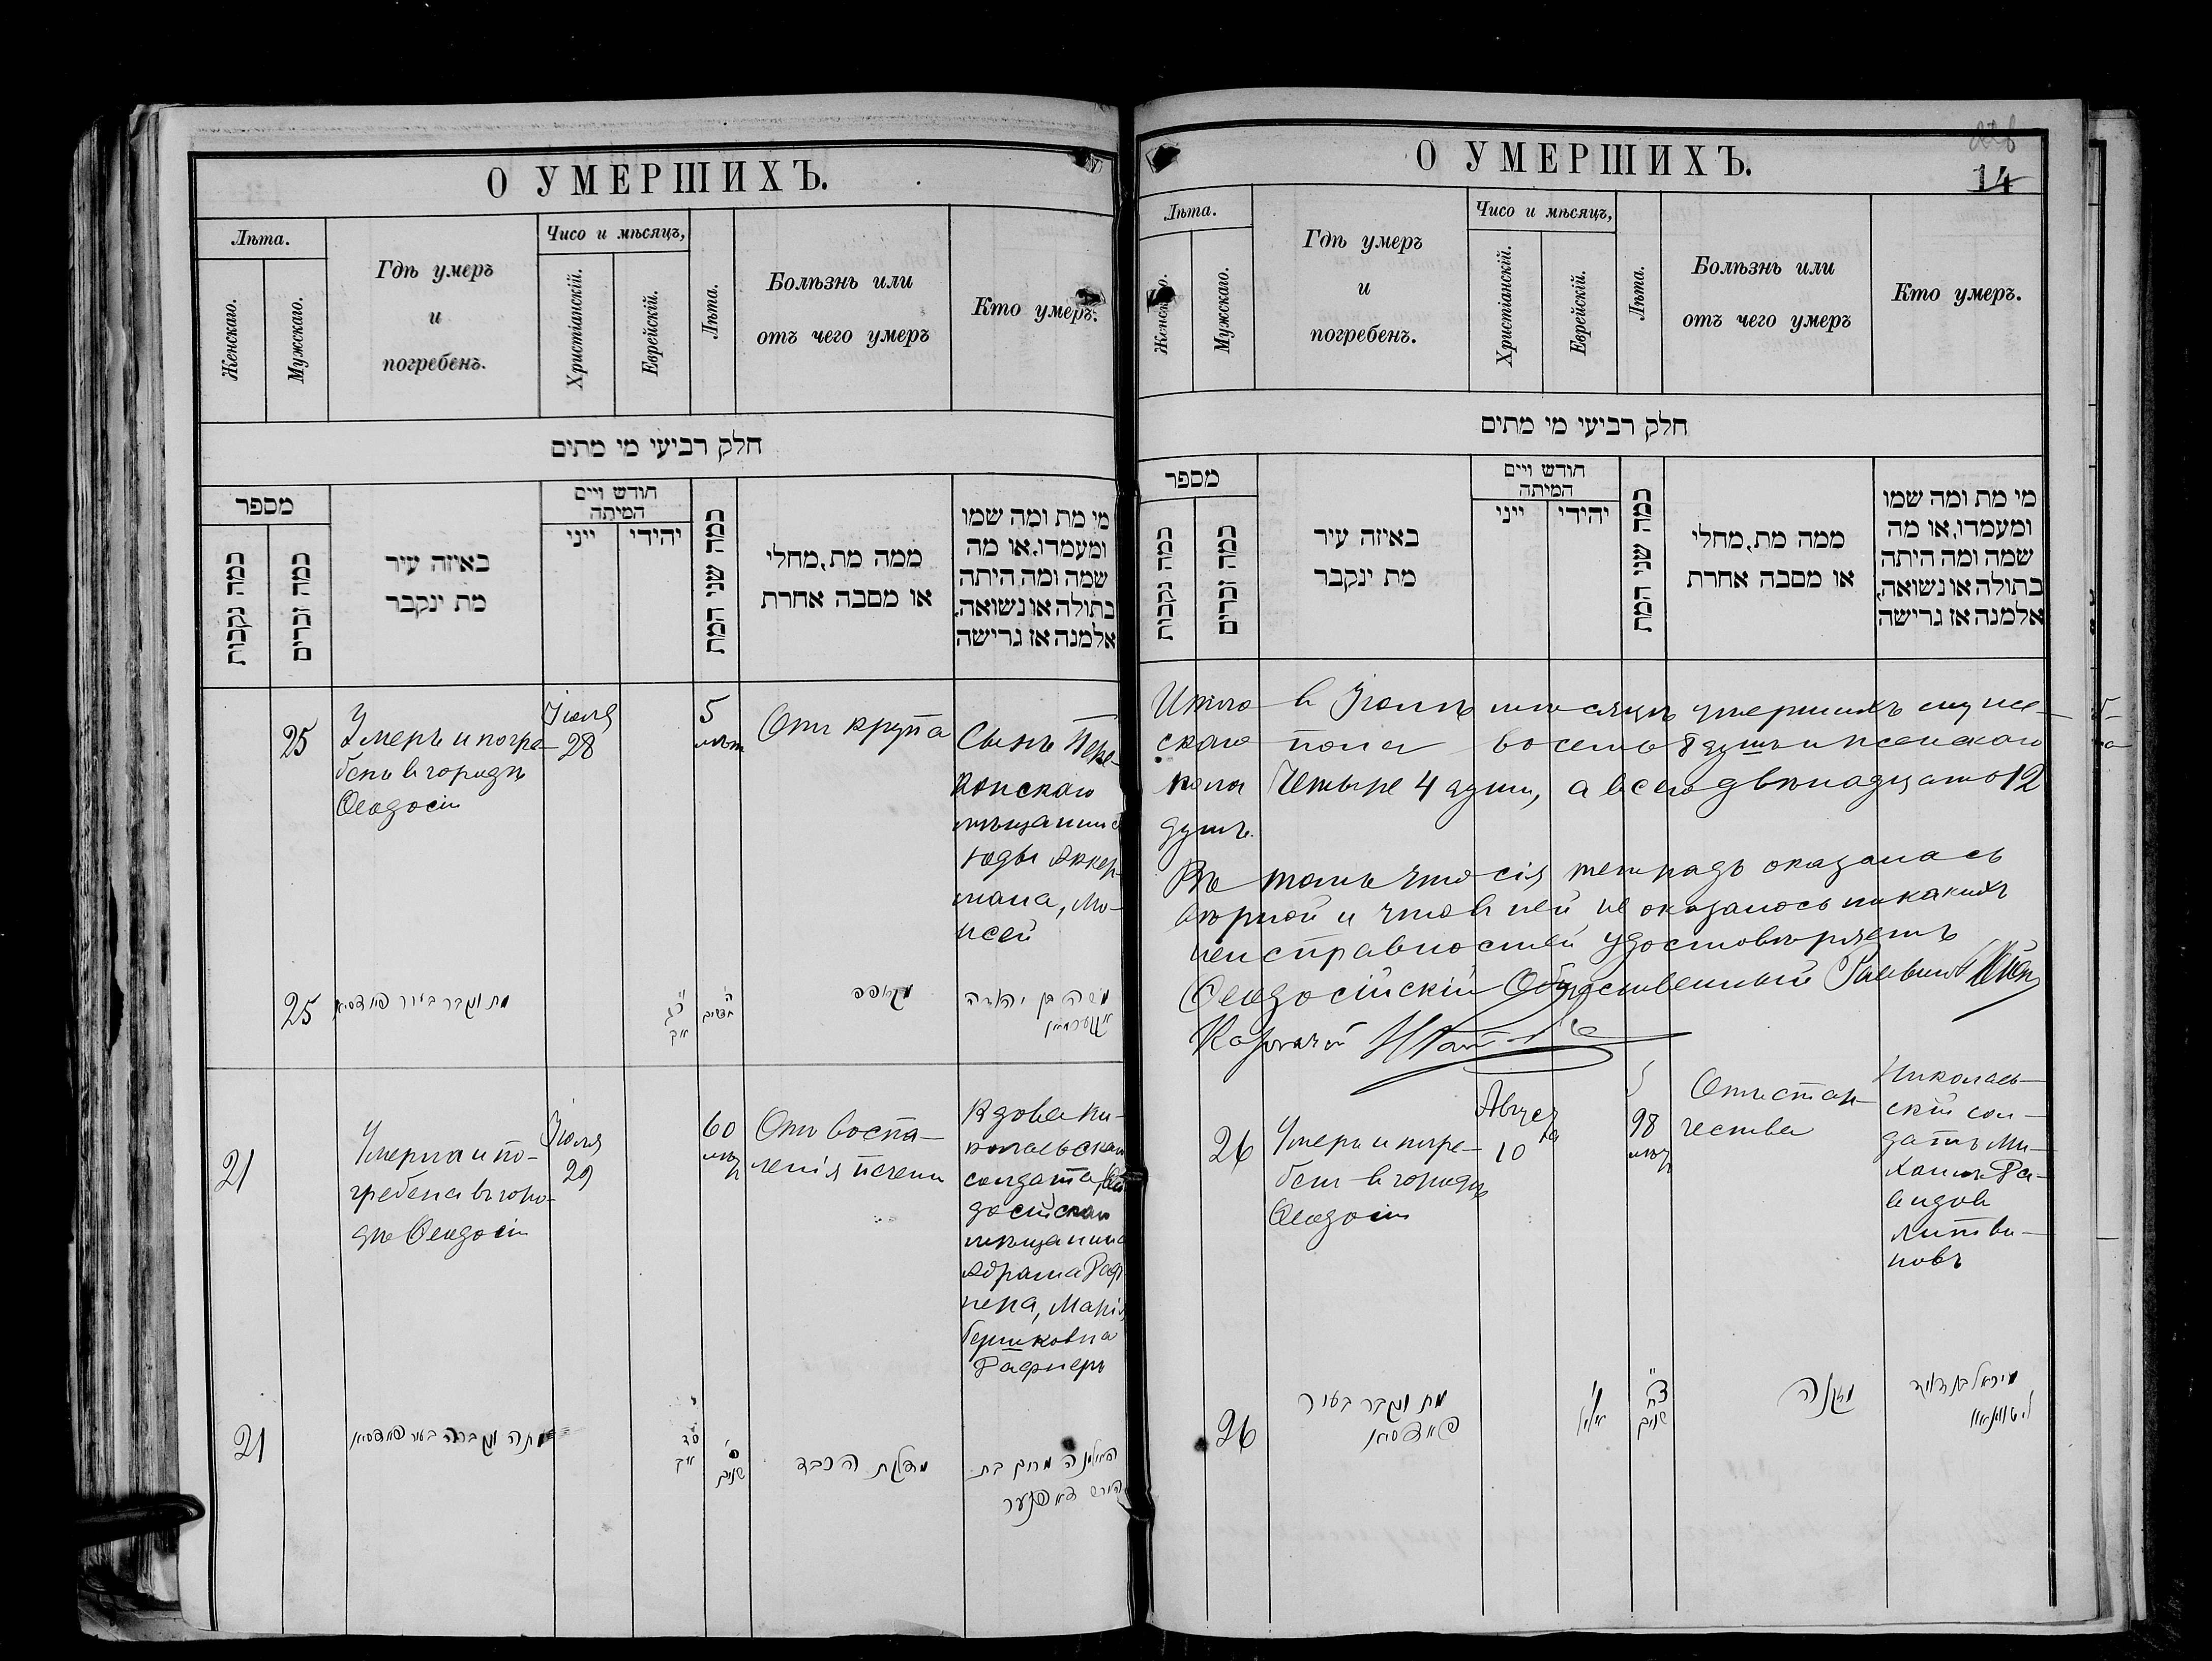 О УМЕРШИХЪ.
Лѣта.
Женскаго.
Мужскаго.
Гдѣ умеръ
и
погребенъ.
Чисо и мѣсяцъ,
Христіанскій.
Еврейскій.
Лѣта.
Болѣзнь или
отъ чего умеръ
Кто умеръ.
חלק רביעי מי מתים
מספר
כמה נקבות
כמה זכרים
באיזה עיר
מת ינקבר
חודש ויים
המיתה
ייני
יהידי
כמה שני המת
ממה מת, מחלי
או מסבה אחרת
מי מת ומה שמו
ומעמדו, או מה
שמה ומה היתה
בתולה או נשואה,
אלמנה אז גרישה
25
Умеръ и погре-
бенъ въ городѣ
Ѳеодосіи
Іюля
28
5
Отъ крупа
Сынъ Пере-
копскаго
мѣщанина
Юды Аккер-
мана, Мо-
исей
25
מת ונקבר בעיר פיאדסיא
משה בן יהודה
אקערמאן
21
Умерла и по-
гребена въ горо-
дѣ Ѳеодосіи
Іюля
29
60
лѣтъ
Отъ воспа-
ленія печени
Вдова Ни-
колаевскаго
солдата Ѳео-
досійскаго
мѣщанина
Абрама Раф-
нера, Марія
Бершковна
Рафнеръ
21
מתה ונקברה בעיר פיאדסיא
ס'
שנים
מדלקת הכבד
האלמנה מרים בת
О УМЕРШИХЪ.
14
Лѣта.
Женскаго.
Мужскаго.
Гдѣ умеръ
и
погребенъ.
Чисо и мѣсяцъ,
Христіанскій.
Еврейскій.
Лѣта.
Болѣзнь или
отъ чего умеръ
Кто умеръ.
חלק רביעי מי מתים
מספר
כמה נקבות
כמה זכרים
באיזה עיר
מת ינקבר
חודש ויים
המיתה
ייני
יהידי
כמה שני המת
ממה מת, מחלי
או מסבה אחרת
מי מת ומה שמו
ומעמדו, או מה
שמה ומה היתה
בתולה או נשואה,
אלמנה אז גרישה
Итого в Іюлѣ мѣсяцѣ умершихъ муже-
скаго пола восемь 8 душъ и женскаго
пола Четыре 4 души, а всего двѣнадцать 12
душъ.
Въ томъ что сія тетрадь оказалась
вѣрной и что в ней не оказалось никакихъ
неисправностей удостовѣряетъ
Ѳеодосійскій Общественный Раввинъ
Казначей
26
Умеръ и погре-
бенъ в городѣ
Ѳеодосіи
Августа
10
98
лѣтъ
Отъ стар-
чества
Николаев-
скій сол-
датъ Ми-
хаилъ Да-
видов
Литви-
новъ
26
מת ונקבר בעיר
פיאדסיא
אלול
צ"ח
שנים
מזקנה